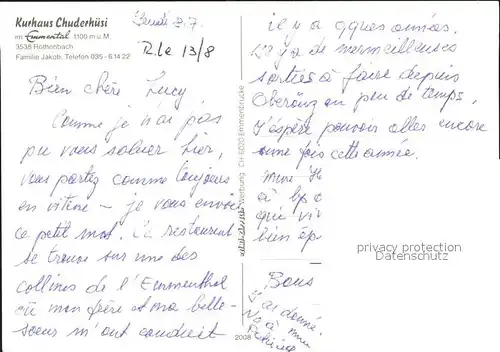 Kurhaus Chuderhüsi
im Emmental 1100 m ü. M.
3538 Röthenbach
Familie Jakob, Telefon 035 - 6 14 22
Lundi 2.7.
R. le 13/8
Bien chère Lucy
Comme je n'ai pas
pu vous saluer hier,
vous partez comme toujours
en vitesse - je vous envoie
ce petit mot. Ce restaurant
se trouve sur une des
collines de l'Emmenthal
où mon frère et ma belle-
soeur m'ont conduit
il y a qques années.
Il y a de merveilleuses
sorties à faire depuis
en peu de temps.
J'espère pouvoir aller encore
une fois cette année.
Mme
à
qui
bien
Bons
J'ai donné
No à mme
Werbung CH-6020 Emmenbrücke
2008
privacy protection
Datenschutz